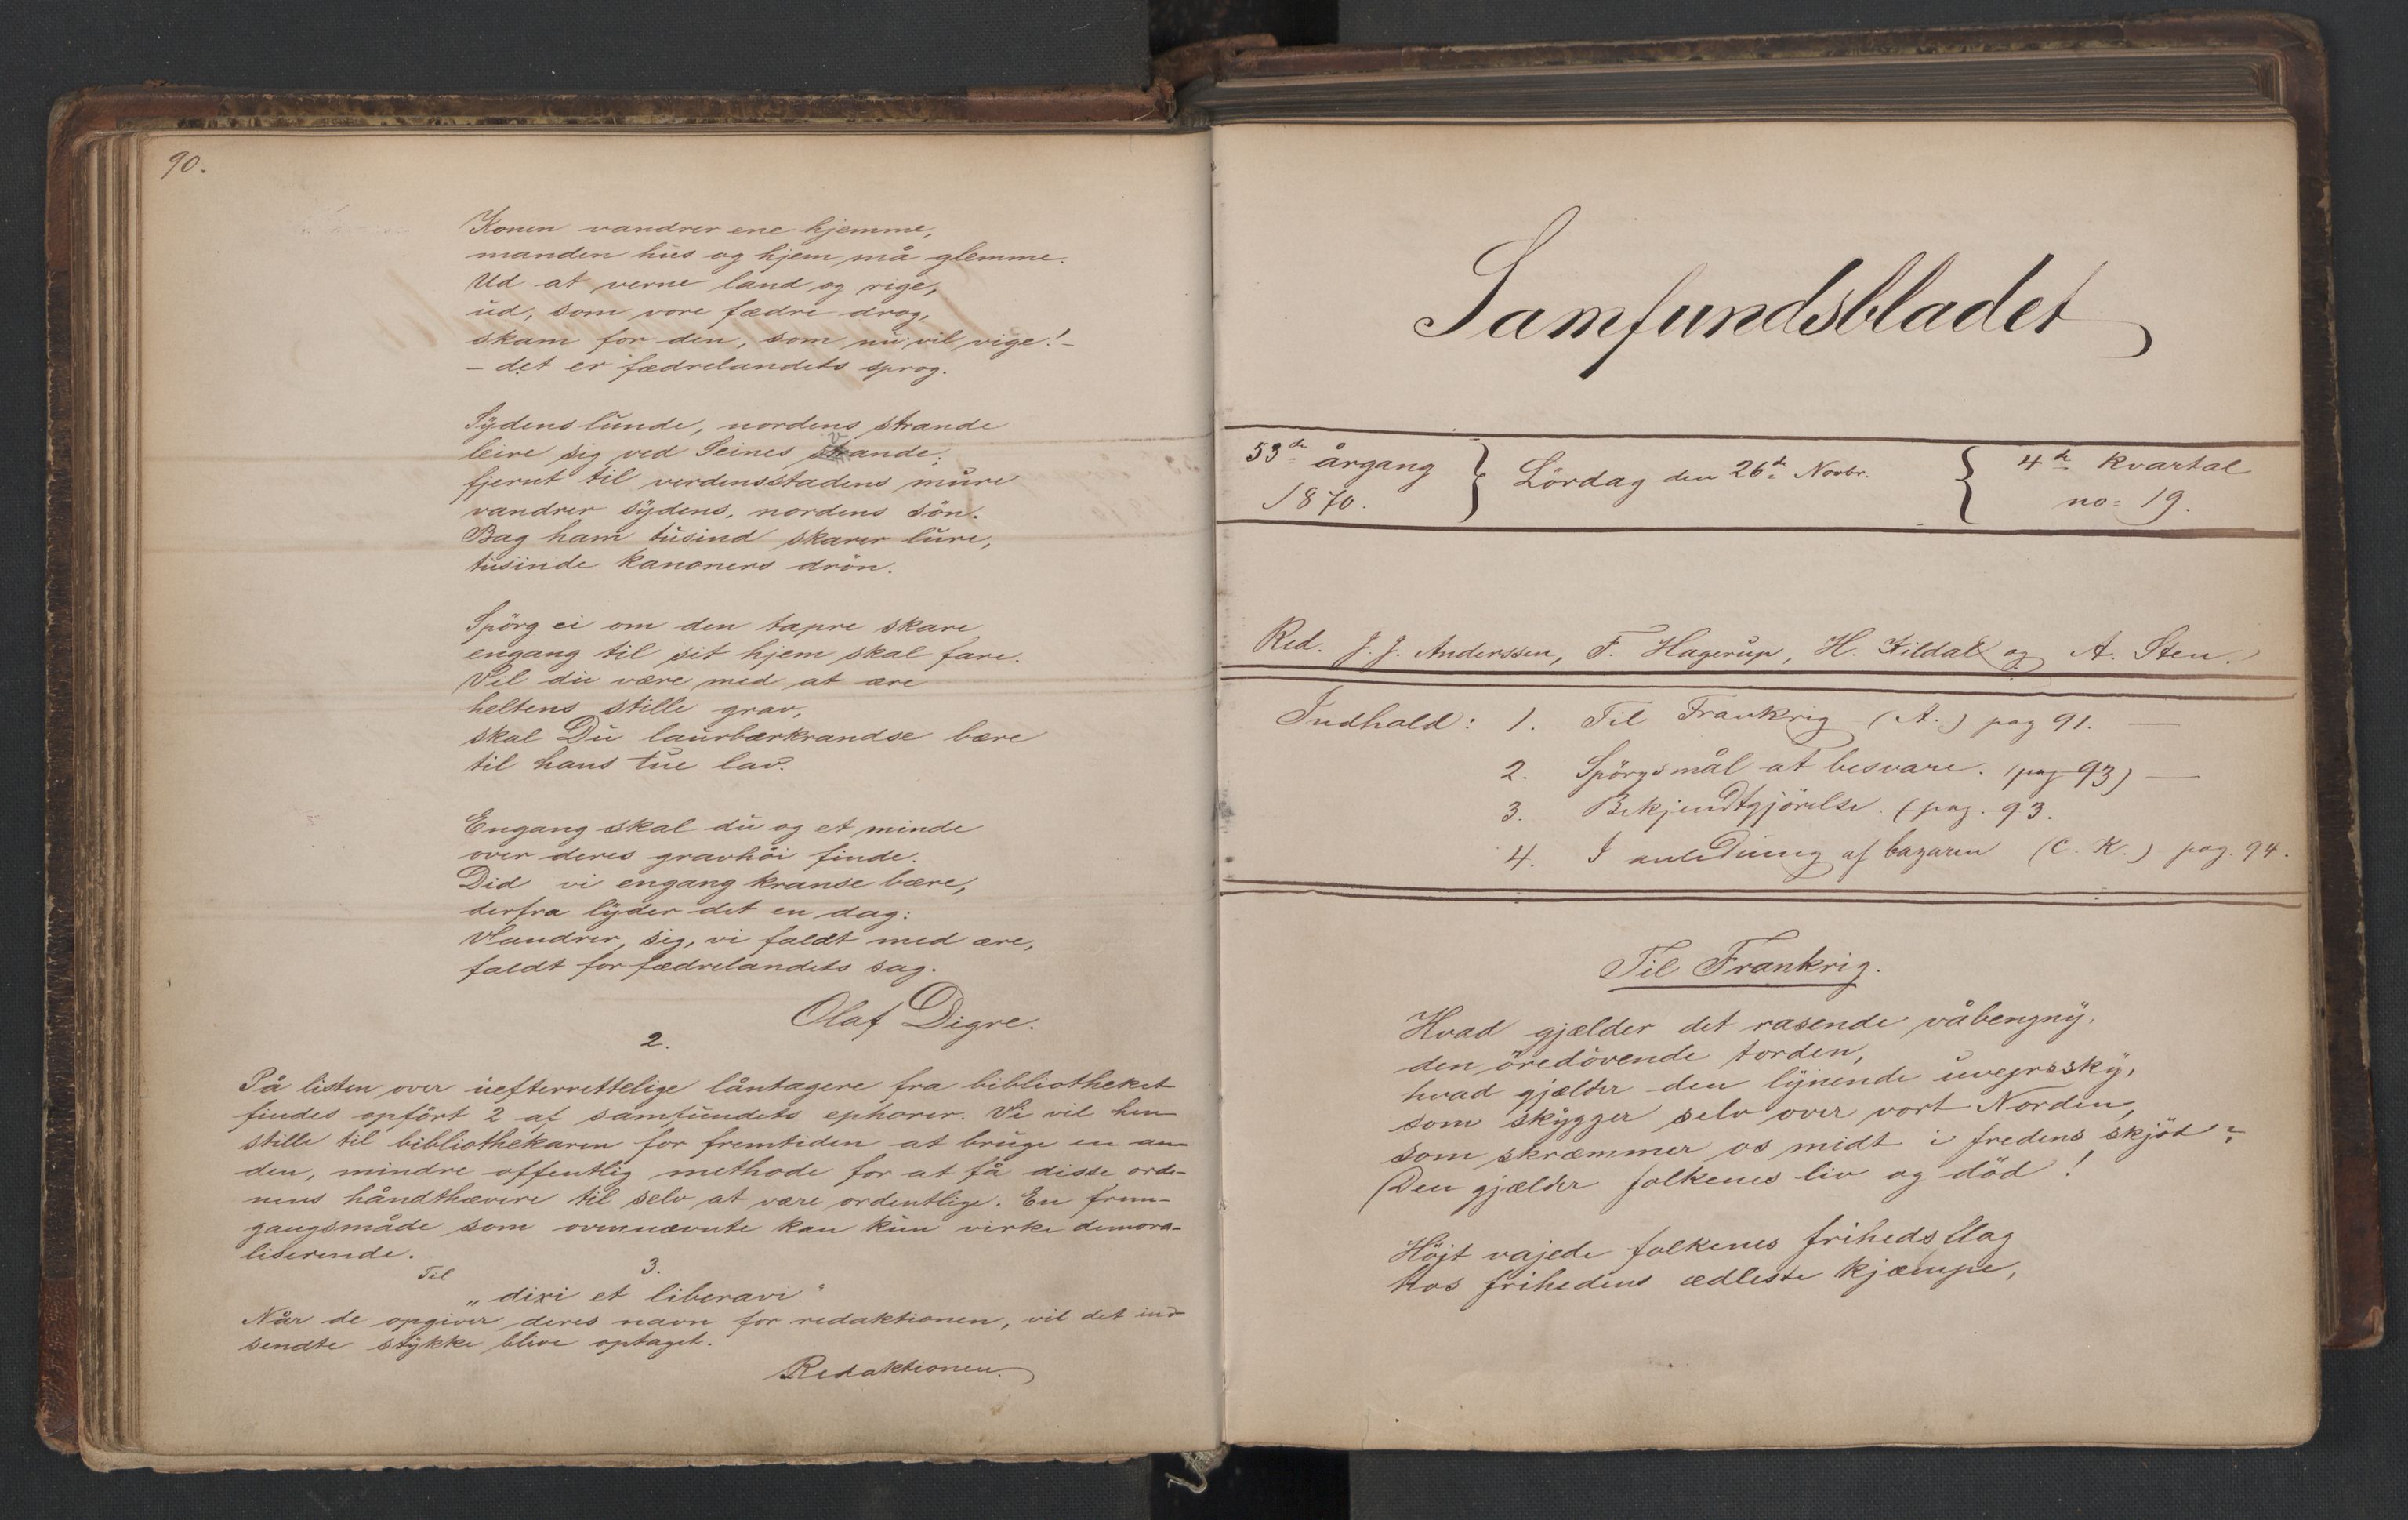 90.
Konen vandrer ene hjemme,
manden hus og hjem må glemme.
Ud at verne land og rige,
ud, som vore fædre drog,
skam for den, som nu vil vige! –
– det er fædrelandets sprog.
Sydens lunde, nordens strande
leire sig ved Seines vande;
fjernt til verdensstadens mure
vandrer sydens, nordens sön.
Bag ham tusind skarer lure,
tusinde kanoners drön.
Spörg ei om den tapre skare
engang til sit hjem skal fare.
Vil du være med at ære
heltens stille grav,
skal Du laurbærkrandse bære
til hans tue lav.
Engang skal du og et minde
over deres gravhöi finde.
Did vi engang kranse bære,
derfra lyder det en dag:
Vandrer, sig, vi faldt med ære,
faldt for fædrelandets sag.
Olaf Digre.
2.
På listen over uefterrettelige låntagere fra bibliotheket
findes opfört 2 af samfundets ephorer. Vi vil hen
stille til bibliothekaren for fremtiden at bruge en an
den, mindre offentlig methode for at få disse orde-
nens håndthævere til selv at være ordentlige. En frem-
gangsmåde som ovennævnte kan kun virke demora-
liserende.
3.
Til
„dixi et liberavi“
Når de opgiver deres navn for redaktionen, vil det ind
sendte stykke blive optaget.
Redaktionen.
Samfundsbladet
53de årgang
1870.
Lördag den 26de Novbr.
4de kvartal
no= 19.
Red. J. J. Anderssen, F. Hagerup, H. Kildal og A. Sten.
Indhald: 1. Til Frankrig (A.) pag 91. —
2. Spörgsmål at besvare. (pag 93) —
3. Bekjendtgjörelse. (pag. 93.
4. I anledning af bazaren (C. K.) pag. 94.
Til Frankrig.
Hvad gjælder det rasende våbengny,
den öredövende torden,
hvad gjælder den lynende uvejrssky,
som skygger selv over vort Norden,
som skræmmer os midt i fredens skjöt?
Den gjælder folkenes liv og död!
Höjt vajede folkenes friheds flag
hos frihedens ædleste kjæmpe,